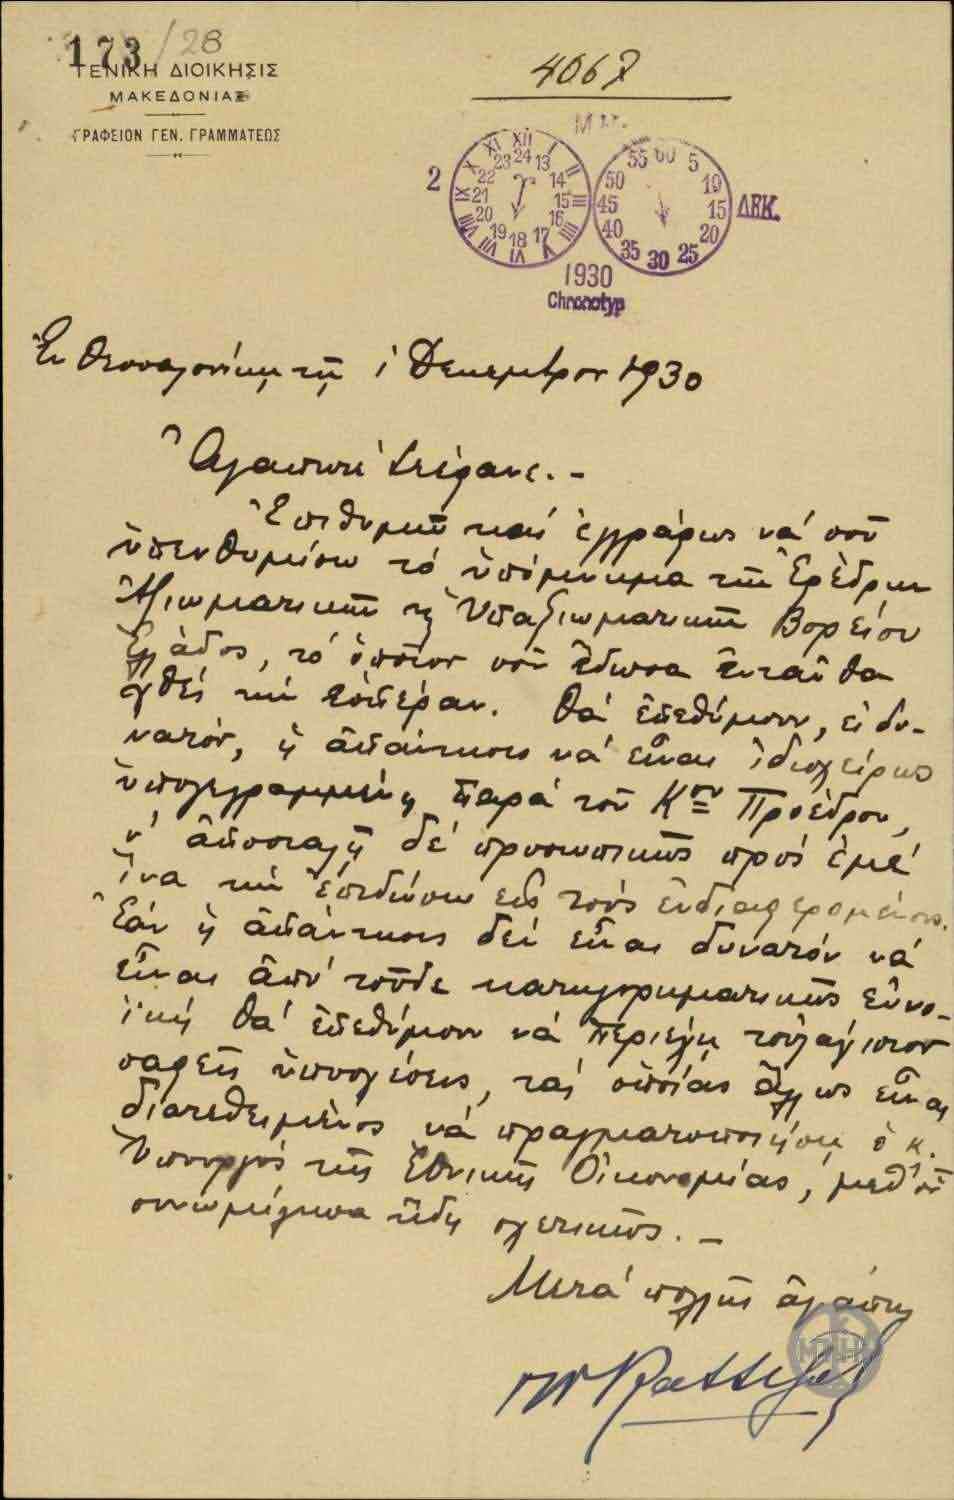 173/28
ΓΕΝΙΚΗ ΔΙΟΙΚΗΣΙΣ
ΜΑΚΕΔΟΝΙΑΣ
ΓΡΑΦΕΙΟΝ ΓΕΝ. ΓΡΑΜΜΑΤΕΩΣ
4067
2
XII I II III IIII V VI VII VIII IX X XI
24 13 14 15 16 17 18 19 20 21 22 23
60 5 10 15 20 25 30 35 40 45 50 55
ΔΕΚ.
1930
Chronotyp
Ἐν Θεσσαλονίκῃ τῇ 1 Δεκεμβρίου 1930
Ἀγαπητέ Στέφανε. -
Ἐπιθυμῶ καί ἐγγράφως νά σοῦ
ὑπενθυμίσω τό ὑπόμνημα τῶν Ἐφέδρων
Ἀξιωματικῶν & Ὑπαξιωματικῶν Βορείου
Ἑλλάδος, τό ὁποῖον σοῦ ἔδωσα ἐνταῦθα
χθές τήν ἑσπέραν. Θά ἐπεθύμουν, εἰ δυ-
νατόν, ἡ ἀπάντησις νά εἶναι ἰδιοχείρως
ὑπογεγραμμένη παρά τοῦ Κου Προέδρου,
ν' ἀποσταλῇ δέ προσωπικῶς πρός ἐμέ
ἵνα τήν ἐπιδώσω εἰς τούς ἐνδιαφερομένους.
Ἐάν ἡ ἀπάντησις δέν εἶναι δυνατόν νά
εἶναι ἀπό τοῦδε κατηγορηματικῶς εὐνο-
ϊκή θά ἐπεθύμουν νά περιέχῃ τοὐλάχιστον
σαφεῖς ὑποσχέσεις, τάς ὁποίας ἄλλως εἶναι
διατεθειμένος νά πραγματοποιήσῃ ὁ κ.
Ὑπουργός τῆς Ἐθνικῆς Οἰκονομίας, μεθ' οὗ
συνωμίλησα ἤδη σχετικῶς. -
Μετά πολλῆς ἀγάπης